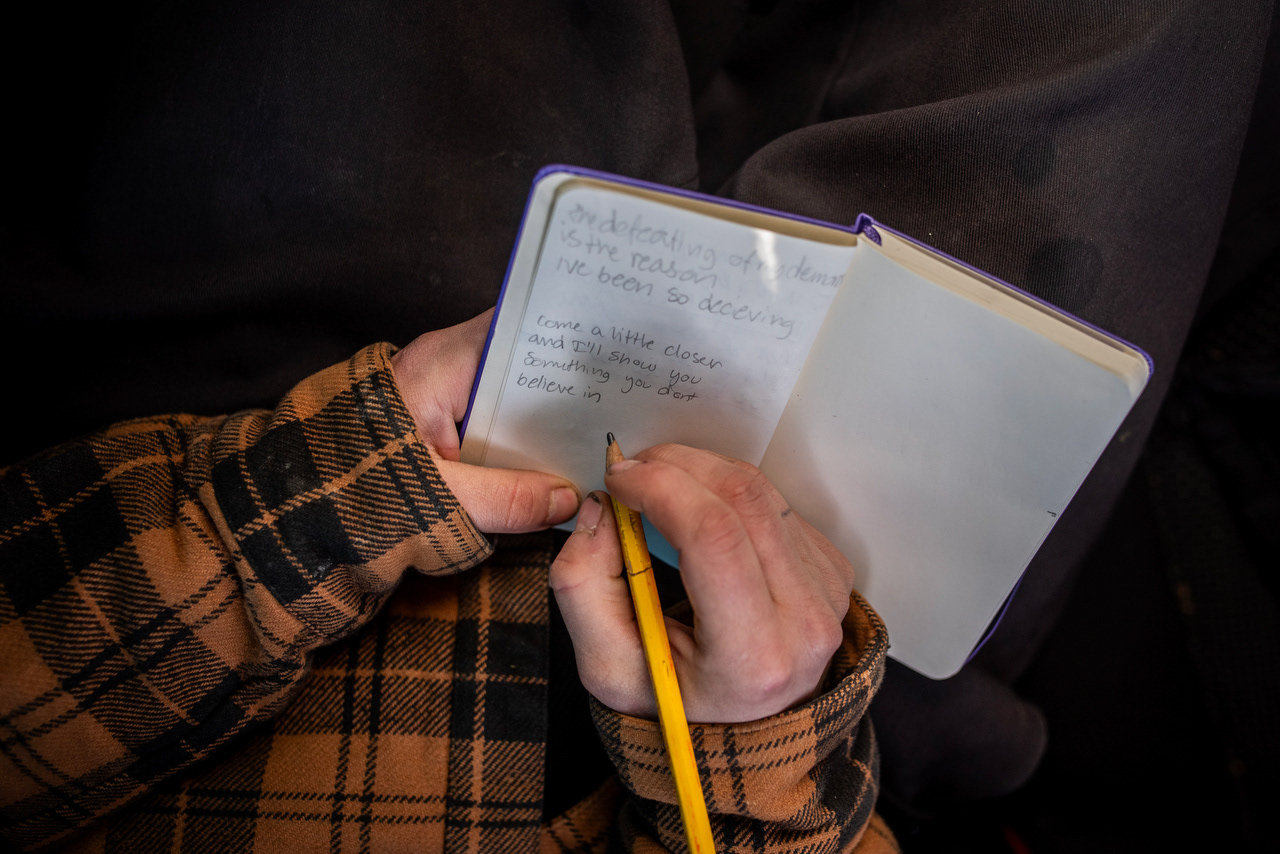 the defeating of my
is the reason
I've been so deceving
come a little closer
and I'll show you
Something you dont
believe in